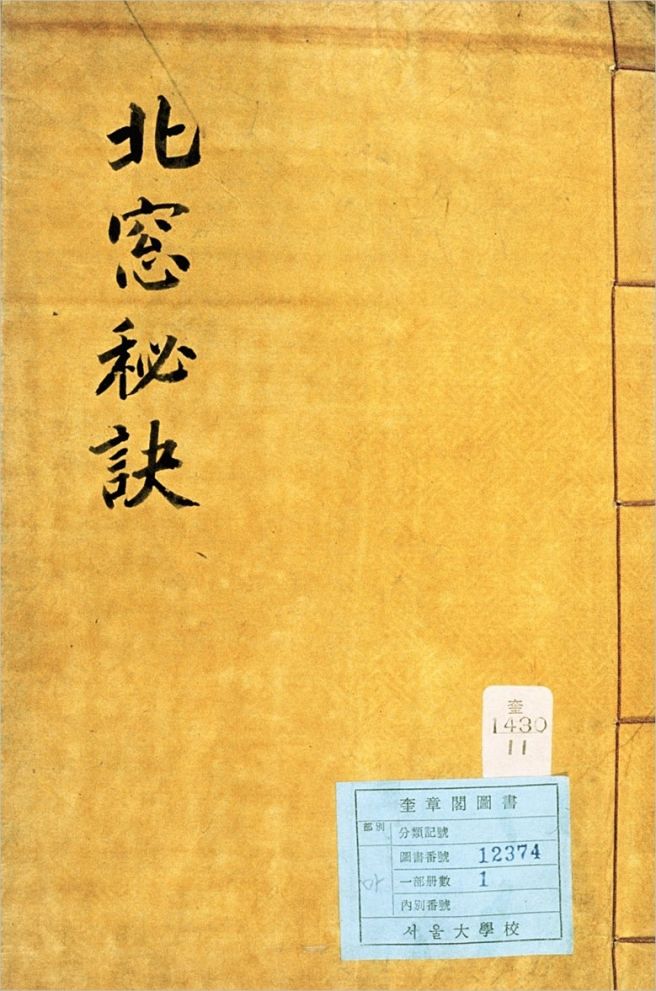 北窓秘訣
奎
1430
11
奎章閣圖書
部別
分類記號
圖書番號 12374
一部册數 1
內別番號
서울大學校